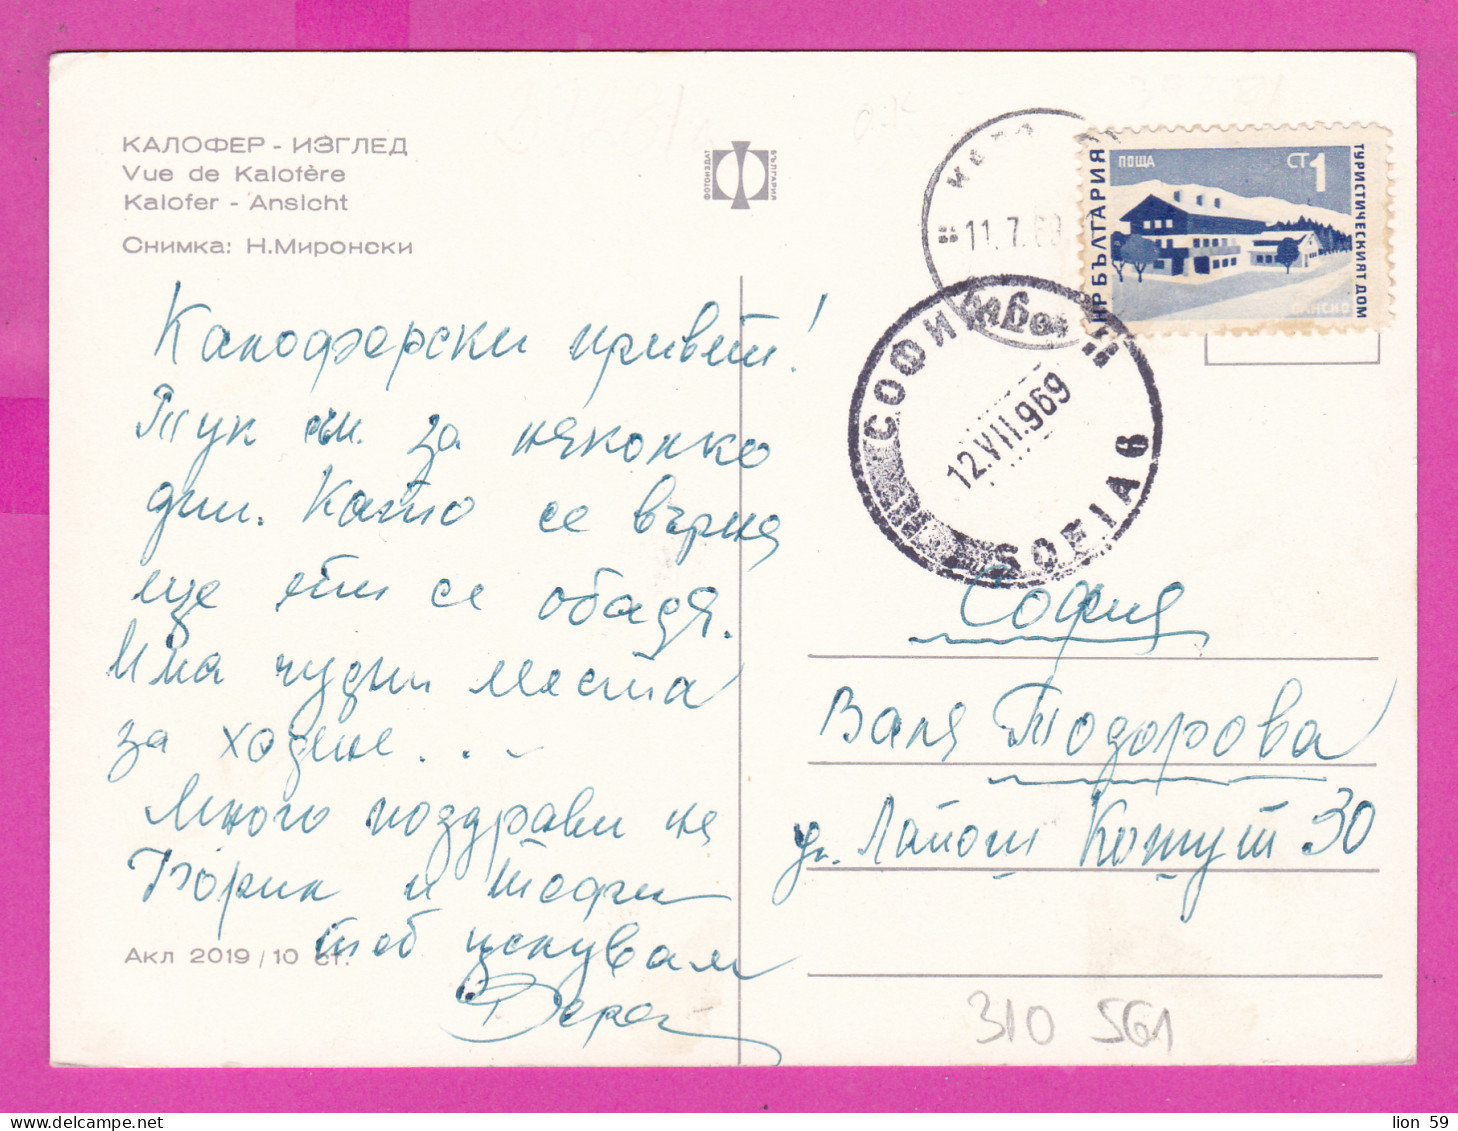 КАЛОФЕР - ИЗГЛЕД
Vue de Kalofère
Kalofer - Ansicht
Снимка: Н.Миронски
ФОТОИЗДАТ
БЪЛГАРИЯ
Калоферски привет!
Тук съм за няколко
дни. Като се върна
ще ти се обадя.
Има чудни места
за ходене...
Много поздрави на
Юрик и Тофи
теб целувам
Вера
Акл 2019/10 ст.
11.7.69
НР БЪЛГАРИЯ
ПОЩА
СТ 1
ТУРИСТИЧЕСКИЯТ ДОМ
БАНСКО
СОФИЯ
12.VII.969
SOFIA 6
София
Валя Тодорова
ул. Лайош Кошут 30
310 561
lion 59